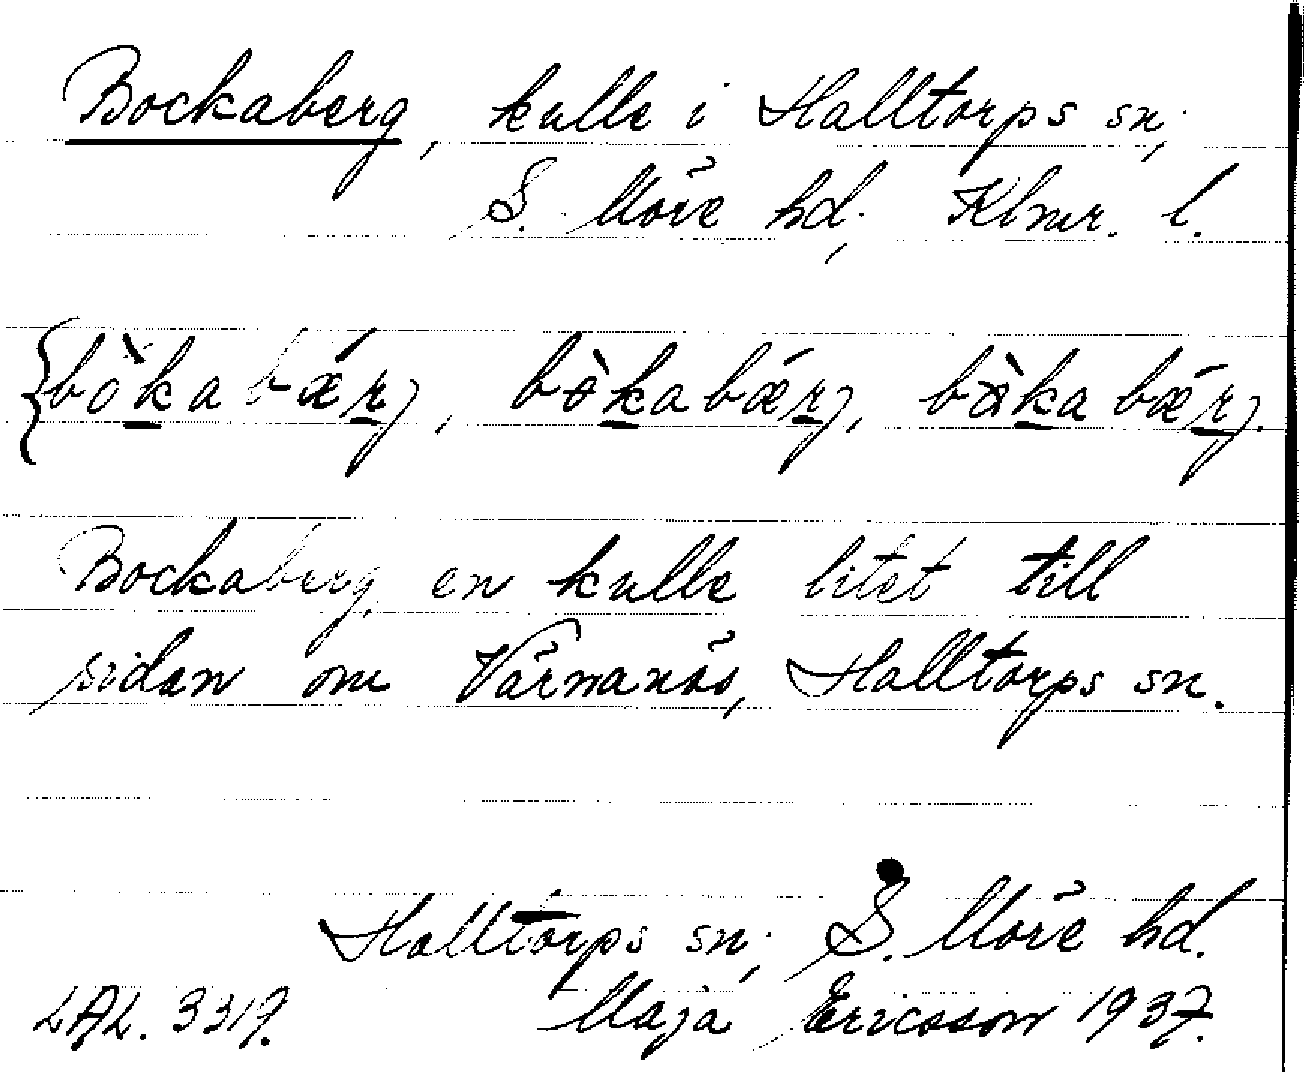 Bockaberg, kulle i Halltorps sn,
S. Möre hd, Klmr. l.
{bòkabǽrj, bòkabǽrj, bàkabǽrj.
Bockaberg, en kulle litet till
sidan om Värnanäs, Halltorps sn.
Halltorps sn, S. Möre hd.
LAL. 3319. Maja Ericsson 1937.